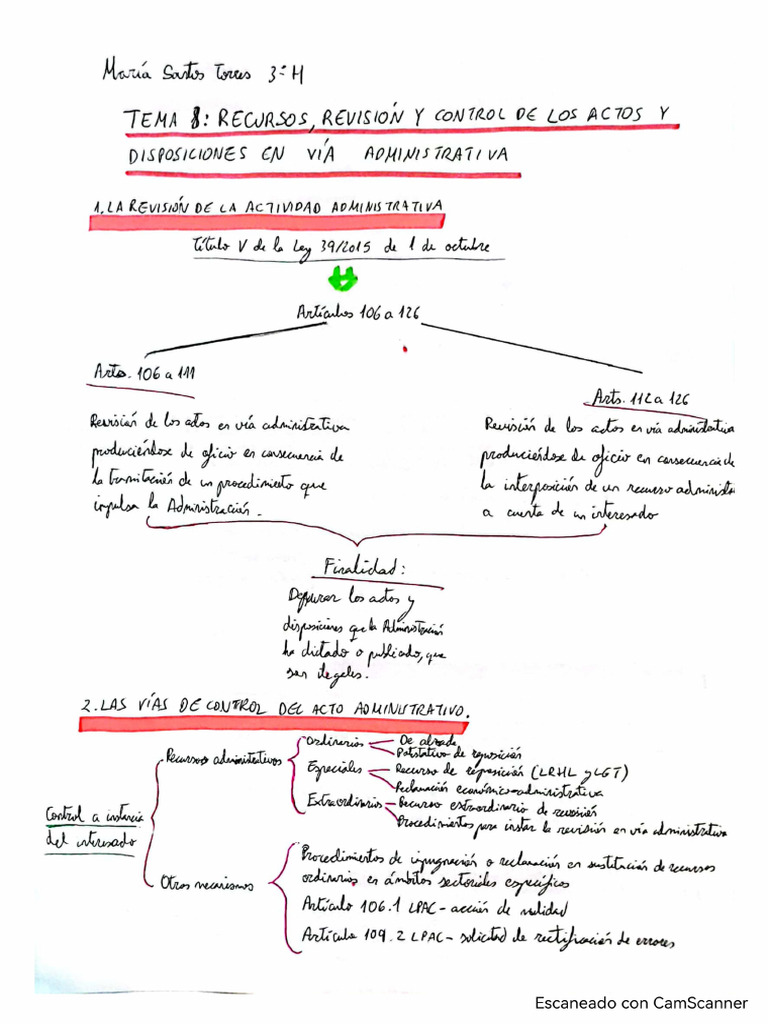 María Santos Torres 3ºH
TEMA 8: RECURSOS, REVISIÓN Y CONTROL DE LOS ACTOS Y
DISPOSICIONES EN VÍA ADMINISTRATIVA
1. LA REVISIÓN DE LA ACTIVIDAD ADMINISTRATIVA
Título V de la Ley 39/2015 de 1 de octubre
Artículos 106 a 126
Arts. 106 a 111
Revisión de los actos en vía administrativa
produciéndose de oficio en consecuencia de
la tramitación de un procedimiento que
impulsa la Administración.
Arts. 112 a 126
Revisión de los actos en vía administrativa
produciéndose de oficio en consecuencia de
la interposición de un recurso administ
a cuenta de un interesado
Finalidad:
Depurar los actos y
disposiciones que la Administración
ha dictado o publicado, que
son ilegales.
2. LAS VÍAS DE CONTROL DEL ACTO ADMINISTRATIVO.
Control a instancia
del interesado
Recursos administrativos
Ordinarios
De alzada
Potestativo de reposición
Especiales
Recurso de reposición (LRHL y LGT)
Reclamación económico-administrativa
Extraordinarios
Recurso extraordinario de revisión
Procedimientos para instar la revisión en vía administrativa
Otros mecanismos
Procedimientos de impugnación o reclamación en sustitución de recursos
ordinarios en ámbitos sectoriales específicos
Artículo 106.1 LPAC - acción de nulidad
Artículo 109.2 LPAC - solicitud de rectificación de errores
Escaneado con CamScanner